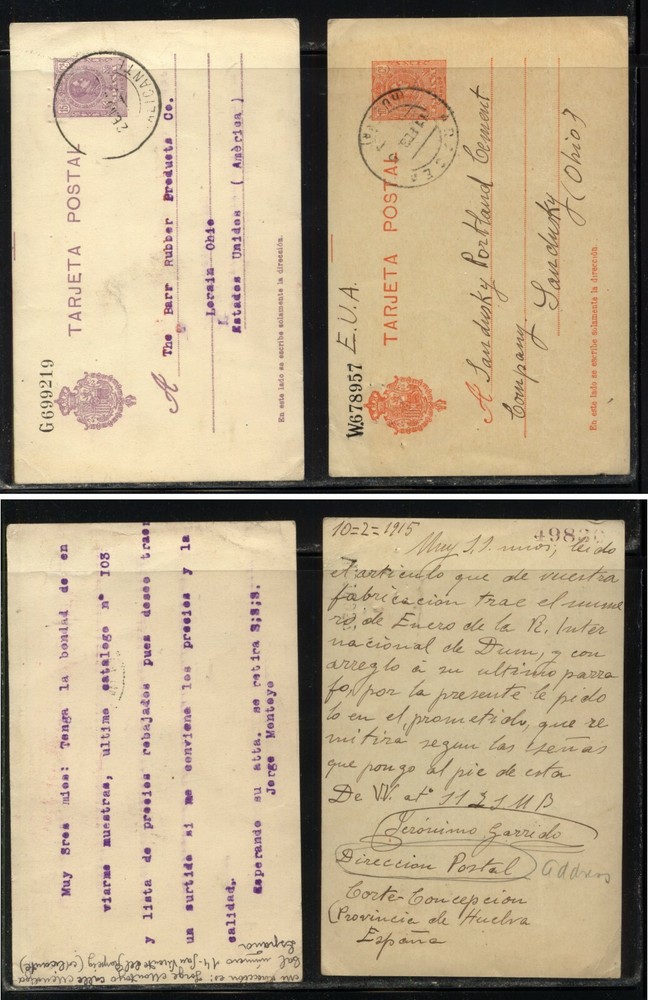 TARJETA POSTAL
G699219
A The Barr Rubber Products Co.
Lorain Ohio
Estados Unidos ( América )
En este lado se escribe solamente la dirección.
TARJETA POSTAL
W678957
E.U.A.
A Sandusky Portland Cement
Company.
Sandusky
(Ohio)
En este lado se escribe solamente la dirección.
Muy Sres mios: Tenga la bondad de en
viarme muestras, ultimo catalogo nº 103
y lista de precios rebajados pues deseo traer
un surtido si me conviene los precios y la
calidad.
Esperando su atta. se retira S;S;S.
Jorge Montoyo
España
10=2=1915
Muy S.S. mios; leido
el articulo que de vuestra
fabricacion trae el nume
ro de Enero de la R. Inter
nacional de Dum, y con
arreglo á su ultimo parra
fo, por la presente le pido
lo en el, prometido, que re
mitira segun las señas
que pongo al pie de esta
De VV. atº
Jerónimo Garrido
Direccion Postal Address
Corte-Concepcion
(Provincia de Huelva
España